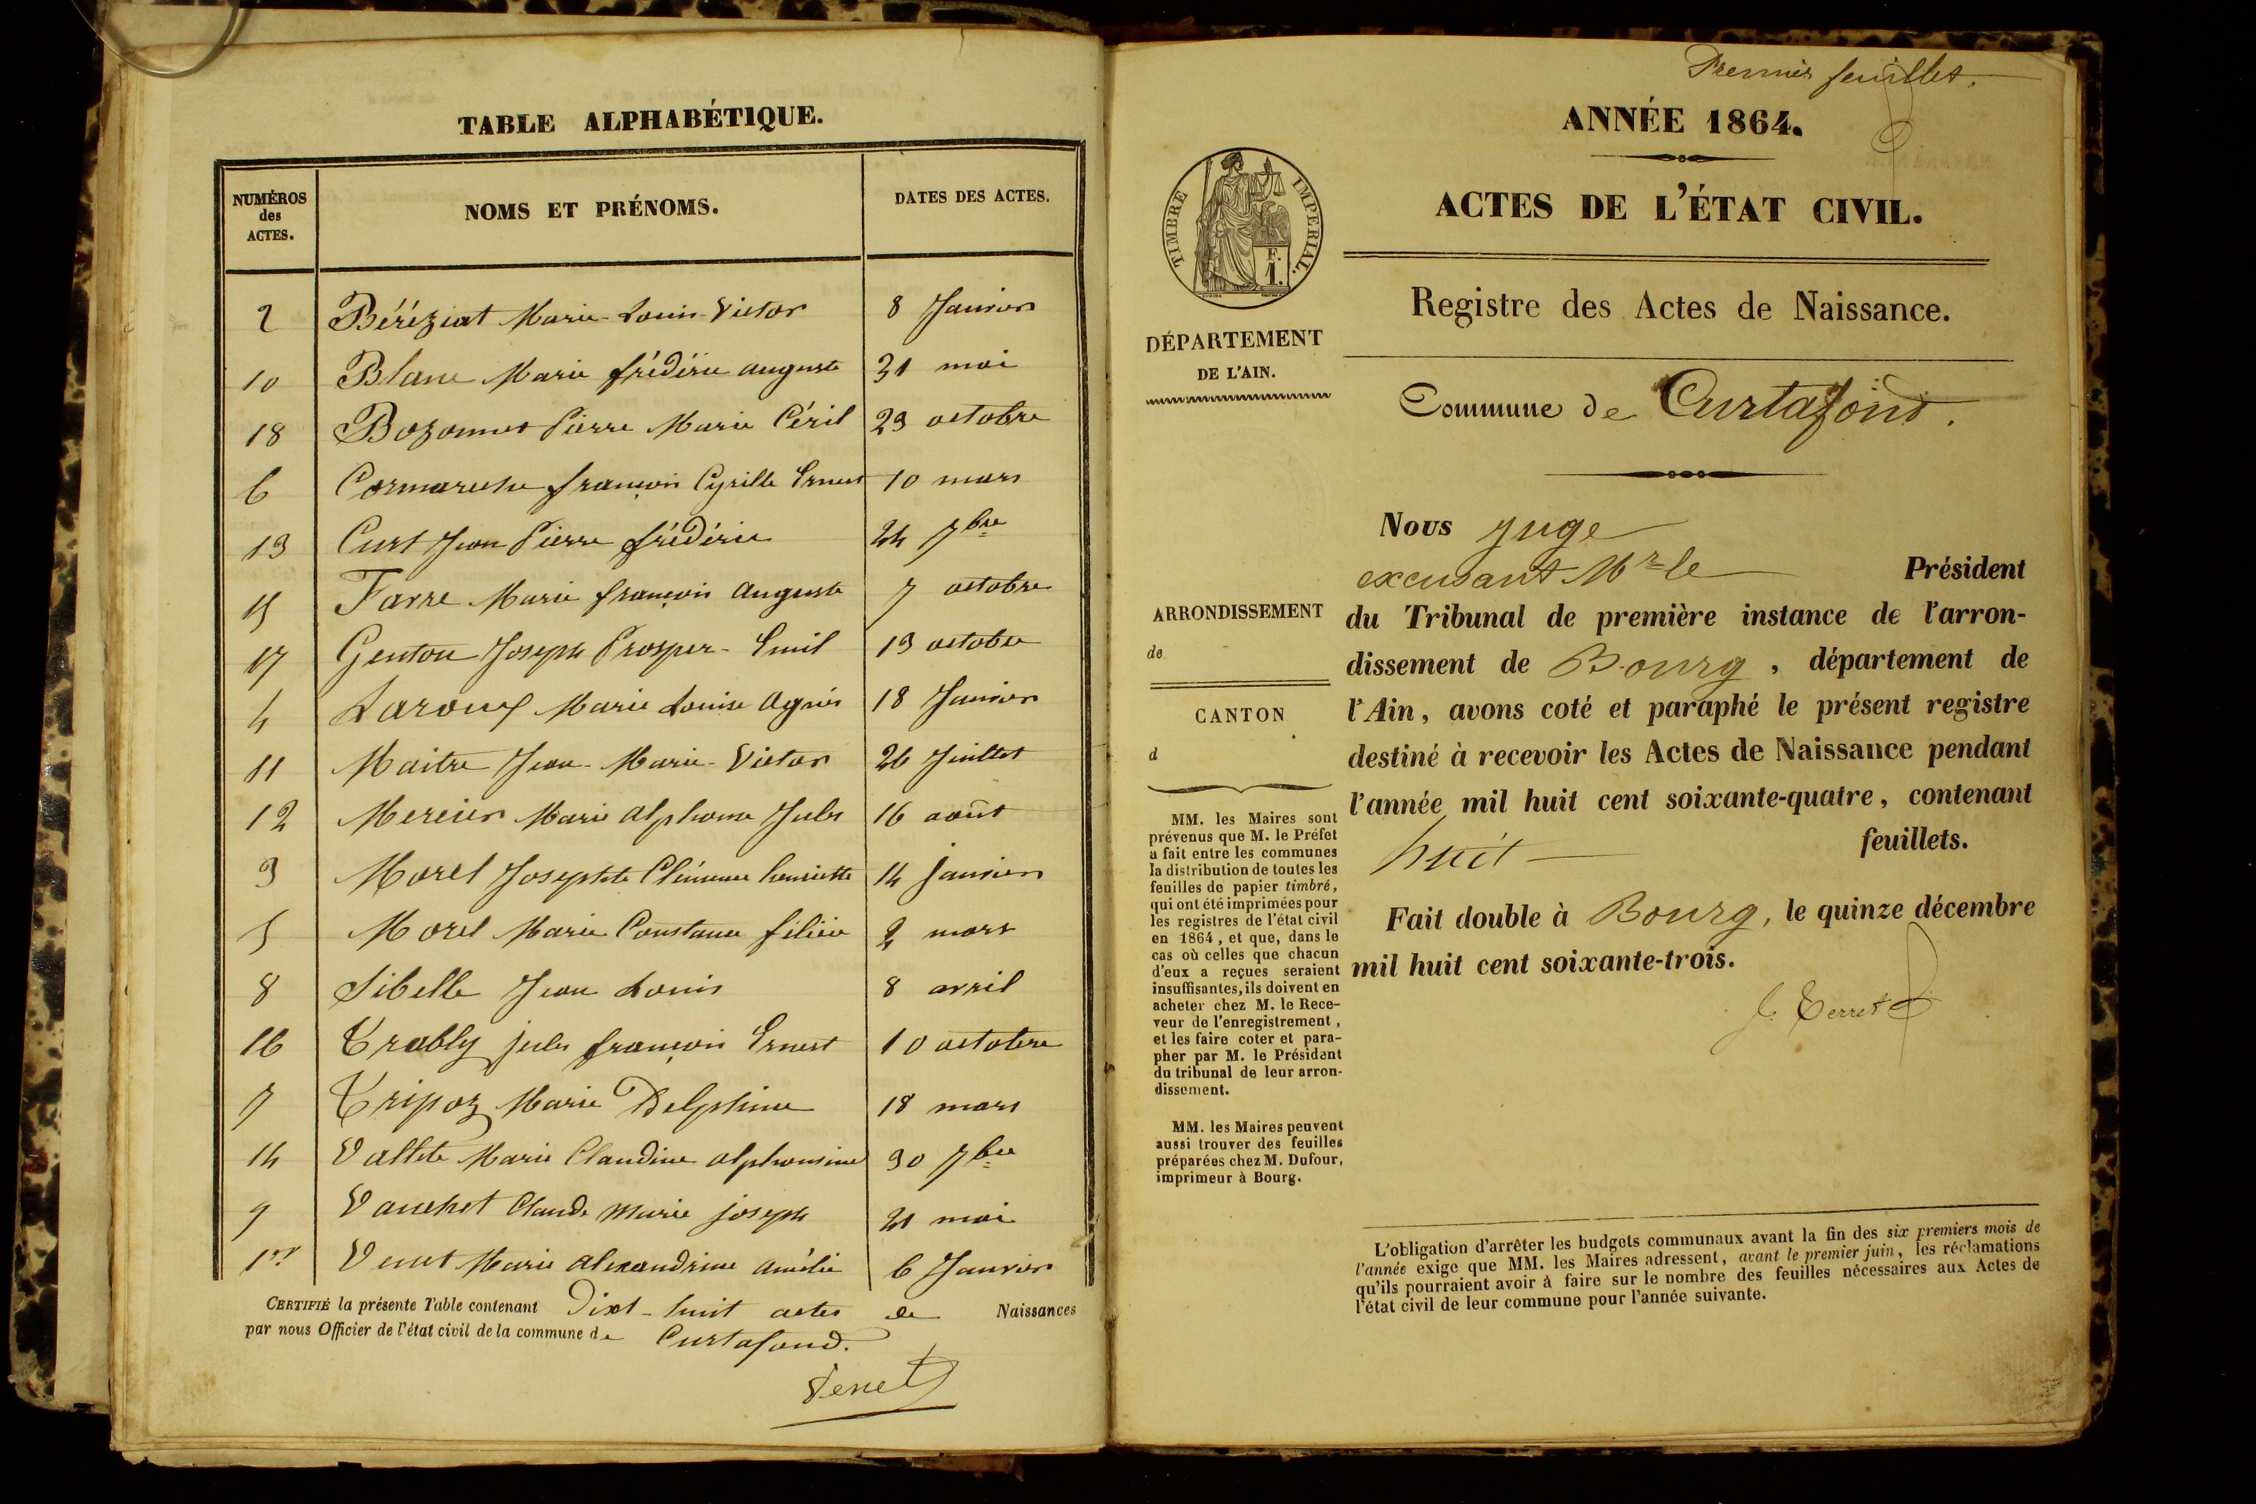 TABLE ALPHABÉTIQUE.
NUMÉROS des ACTES. NOMS ET PRÉNOMS. DATES DES ACTES.
2 Béréziat Marie-Louis-Victor 8 Janvier
10 Blanc Marie frédéric auguste 31 mai
18 Bozonnet Pierre Marie Céril 23 octobre
6 Cormareche françois Cyrille Ernest 10 mars
13 Curt Jean Pierre frédéric 24 7bre
15 Farre Marie françois auguste 7 octobre
17 Genton Joseph Prosper-Emil 13 octobre
4 Laroux Marie Louise agnès 18 Janvier
11 Maitre Jean-Marie-Victor 26 Juillet
12 Mercier Marie alphonse Jules 16 août
3 Morel Josephte Clémence henriette 14 janvier
5 Morel Marie Constance 2 mars
8 Sibelle Jean Louis 8 avril
16 Trably jules françois Ernest 10 octobre
7 Tripoz Marie Delphine 18 mars
14 Vallete Marie Claudine alphonsine 30 7bre
9 Vauchot Claude Marie joseph 21 mai
1er Venet Marie alexandrine amélie 6 Janvier
CERTIFIÉ la présente Table contenant Dixt-huit actes de Naissances
par nous Officier de l'état civil de la commune de Curtafond.
Venet
Premier feuillet.
ANNÉE 1864.
ACTES DE L'ÉTAT CIVIL.
TIMBRE IMPERIAL.
F.
1.
Registre des Actes de Naissance.
DÉPARTEMENT
DE L'AIN.
Commune de Curtafond.
Nous juge
excusant Mr le Président
du Tribunal de première instance de l'arron-
dissement de Bourg, département de
l'Ain, avons coté et paraphé le présent registre
destiné à recevoir les Actes de Naissance pendant
l'année mil huit cent soixante-quatre, contenant
huit feuillets.
Fait double à Bourg, le quinze décembre
mil huit cent soixante-trois.
ARRONDISSEMENT
de
CANTON
d
MM. les Maires sont
prévenus que M. le Préfet
a fait entre les communes
la distribution de toutes les
feuilles de papier timbré,
qui ont été imprimées pour
les registres de l'état civil
en 1864, et que, dans le
cas où celles que chacun
d'eux a reçues seraient
insuffisantes, ils doivent en
acheter chez M. le Rece-
veur de l'enregistrement,
et les faire coter et para-
pher par M. le Président
du tribunal de leur arron-
dissement.
MM. les Maires peuvent
aussi trouver des feuilles
préparées chez M. Dufour,
imprimeur à Bourg.
L'obligation d'arrêter les budgets communaux avant la fin des six premiers mois de
l'année exige que MM. les Maires adressent, avant le premier juin, les réclamations
qu'ils pourraient avoir à faire sur le nombre des feuilles nécessaires aux Actes de
l'état civil de leur commune pour l'année suivante.